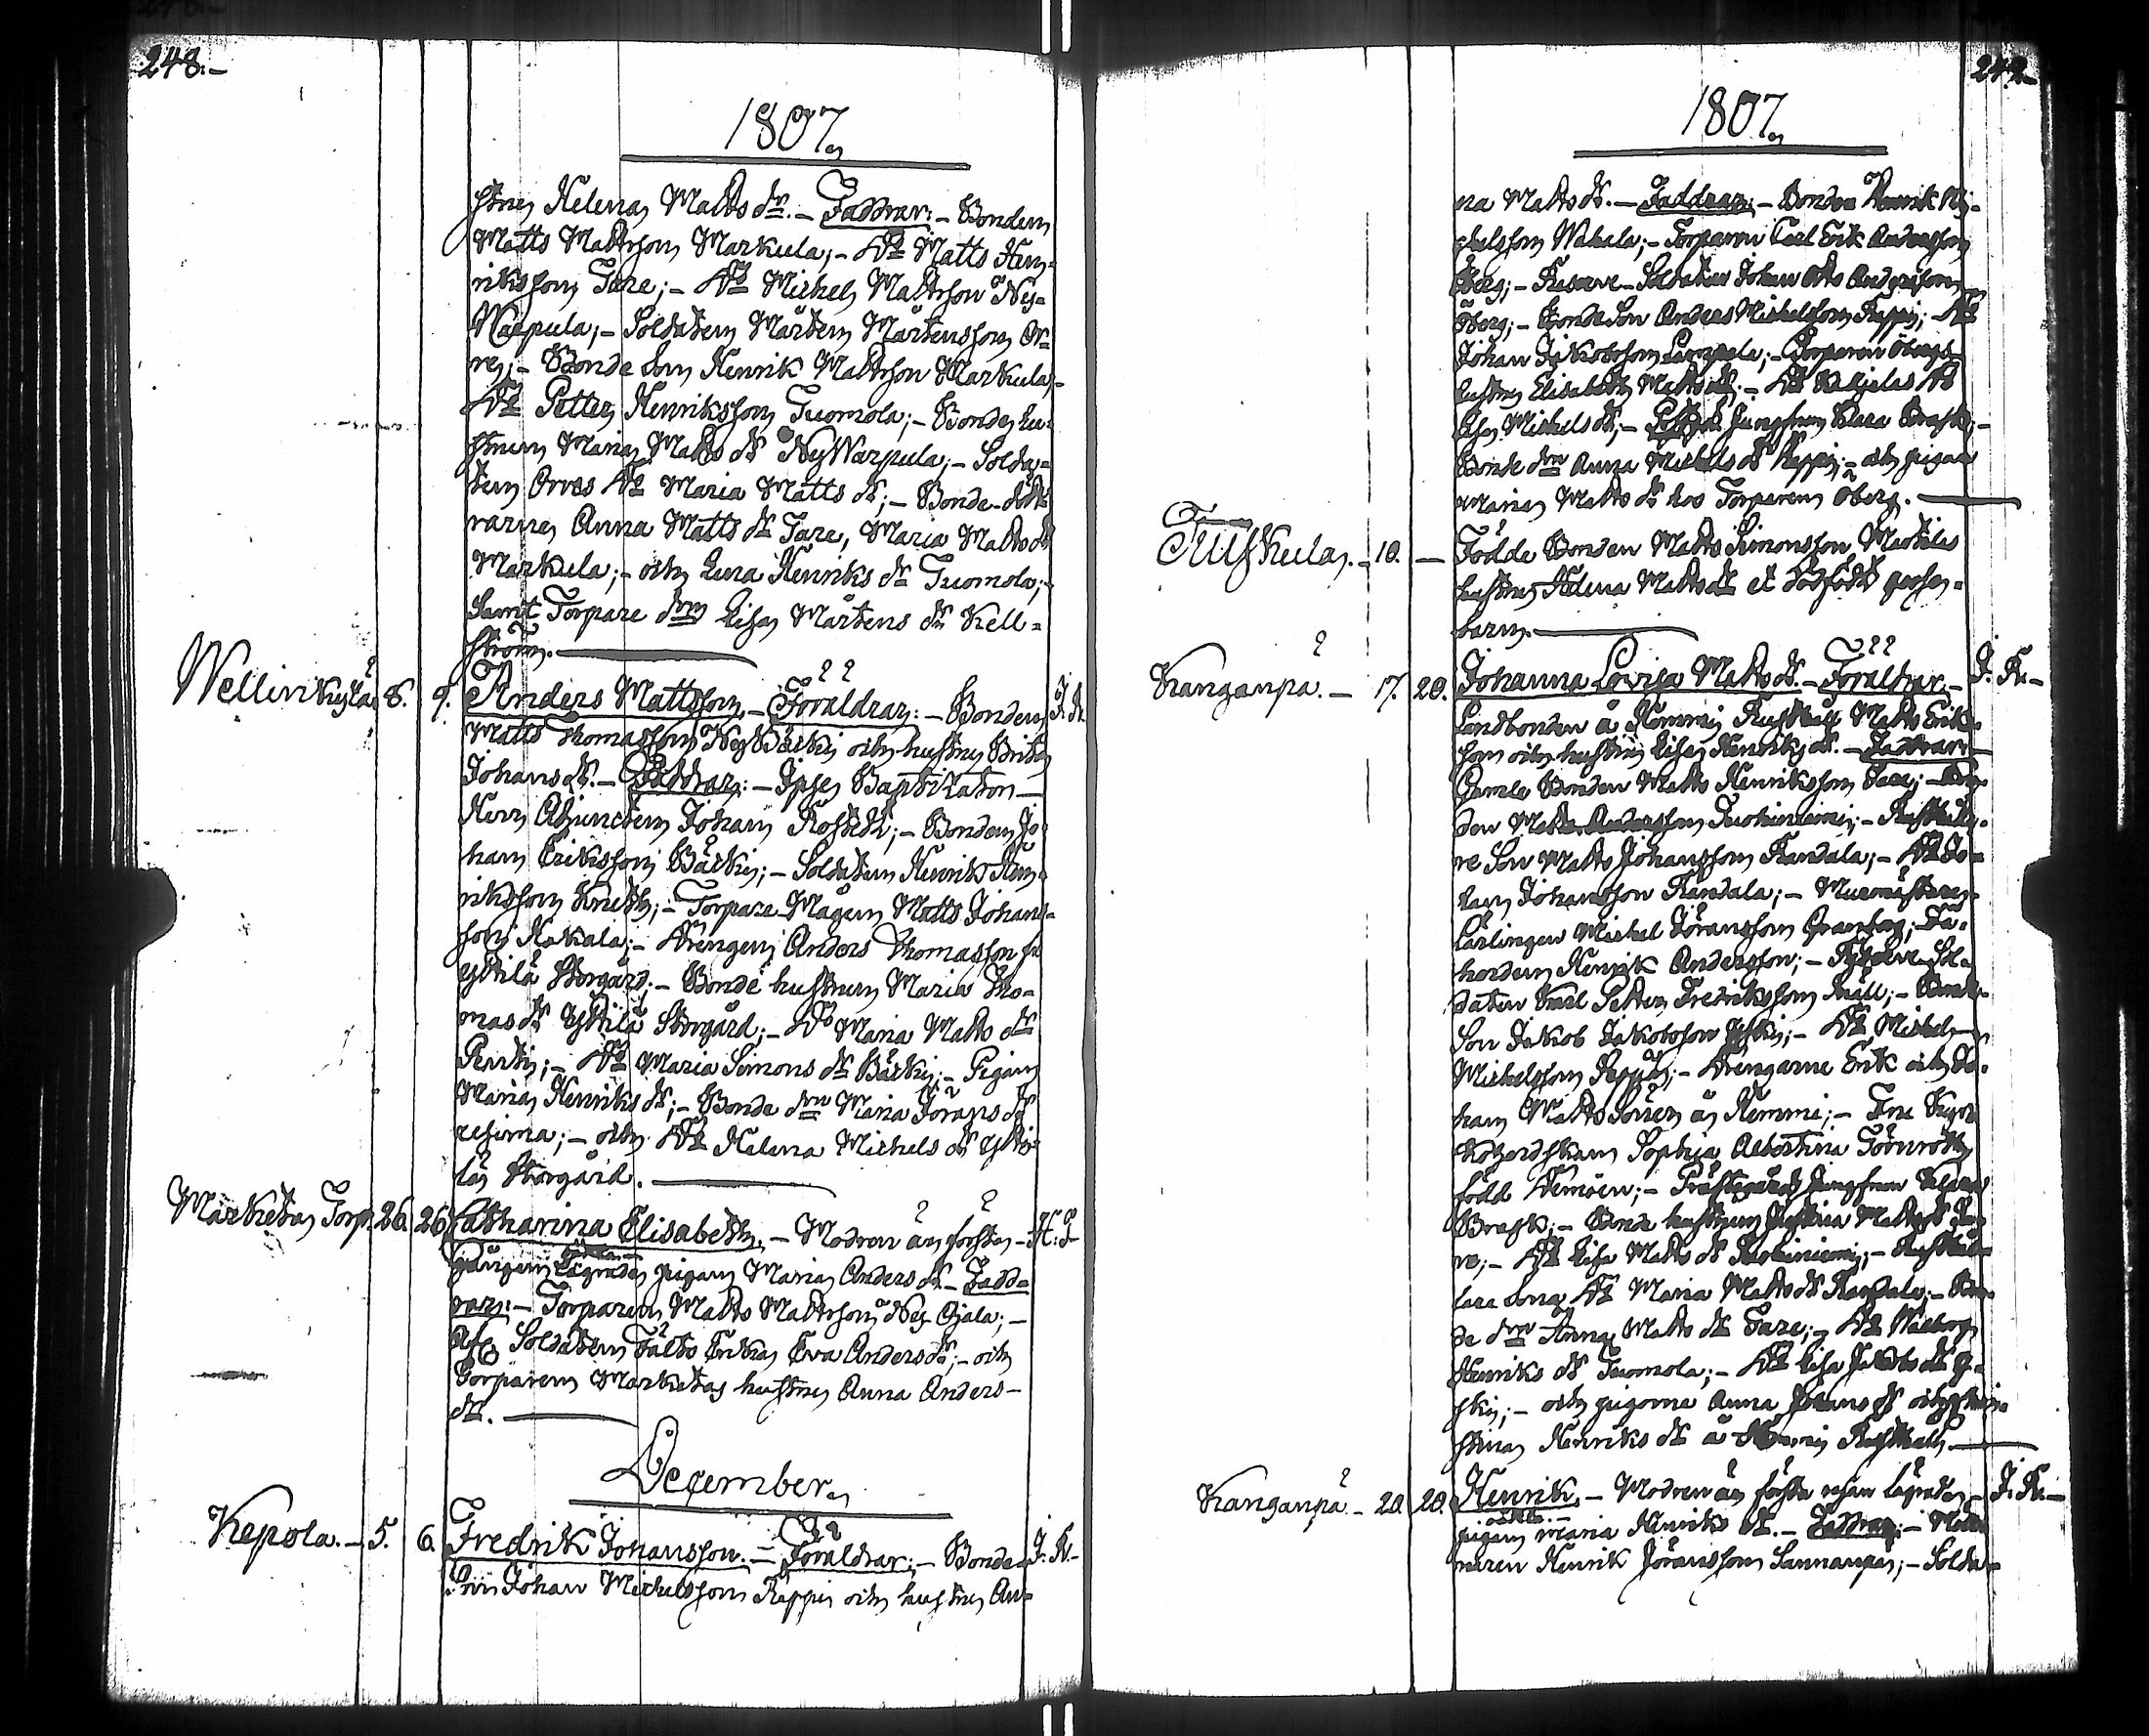 248.
1807.
stru Helena Matts dr. – Faddrar: – Bonden
Matts Mattsson Markula; – Do Matts Hen-
riksson Tare; – Do Michel Mattsson Ny-
Warpula; – Soldaten Mårten Mårtensson Or-
re; – Bonde Son Henrik Mattsson Markula;
Do Petter Henriksson Tuomola; – Bonde hu-
strun Maria Matts dr NyWarpula; – Solda-
ten Orres Do Maria Matts dr; – Bonde-dött-
rarne Anna Matts dr Tare, Maria Matts dr
Markula; – och Lena Henriks dr Tuomola;
Samt Torpare drn Lisa Mårtens dr Kell-
ström.
Wellinkylä 8. 9. Anders Mattsson. – Föräldrar: – Bonden J. K.
Matts Thomasson NyBärki och hustru Brita
Johans dr. – Faddrar: – Ipse Baptizator
Herr Adjuncten Johan; – Bonden Jo-
han Eriksson Bärki; – Soldaten Henrik Hen-
riksson; – Torpare Mågen Matts Johans-
son Kakala; – Drengen Anders Thomasson fr
Yttilä Storgård; – Bonde hustrun Maria Tho-
mas dr Yttilä Storgård; – Do Maria Matts dr
; – Do Maria Simons dr Bärki; – Pigan
Maria Henriks dr; – Bonde drn Maria Jörans dr
; – och Do Helena Michels dr Ytti-
lä Storgård.
Marketas Torp. 26. 26. Catharina Elisabeth. – Modren än första
gången lägrade pigan Maria Anders dr – Fadd-
rar: – Torparen Matts Mattsson Ny Ojala; –
Soldaten Fälts Enka Eva Anders dr; – och
Torparen Marketas hustru Anna Anders
dr.
December.
Kepola. – 5. 6. Fredrik Johansson. – Föräldrar: – Bonde J. K.
Son Johan Michelsson Reppi och hustru An-
249.
1807.
na Matts dr. – Faddrar: – Bonden Henrik Mi-
chelsson Wakala; – Torparen Carl Erik Andersson
Öberg; – Reserve-Soldaten Johan
Öberg; – Bonde Son Anders Michelsson Reppi; – Do
Johan Jakobsson Lampola; – Torparen Öbergs
hustru Elisabeth Matts dr; – Do
Lisa Michels dr; – Jungfrun Klara Brask; –
Bonde drn Anna Michels dr Reppi; – och pigan
Maria Matts dr hos Torparen Öberg.
Tuiskula. – 10. – Födde Bonden Matts Simonsson Mattilas
hustru Helena Matts dr et dödfödt gosse-
barn.
Kanganpä. – 17. 20. Johanna Lovisa Matts dr. – Föräldrar. – J. K.
Landbonden å Hemmi Rusthåll Matts Eriks-
son och hustru Lisa Henriks dr. – Faddrar: –
Gamle Bonden Matts Henriksson Tare; – Bon-
den Matts Andersson Juohiniemi; – Rusthålla-
re Son Matts Johansson Randala; – Do Jo-
han Johansson Randala; – Murmästare
Lärlingen Michel Jöransson Granberg; – Få-
herden Henrik Andersson; – Reserve Sol-
daten Karl Petter Fredriksson Snäll; – Bonde
Son Jakob Jakobsson; – Do Michel
Michelsson Reppi; – Drengarne Erik och Jo-
han Matts Söner å Hemmi; – Fru
Sophia Albertina Törnroth
född Hemöen; – Prästgårds Jungfrun Klara
Brask; – Bonde hustrun Matts dr Ta-
re; – Do Lisa Matts dr Juohiniemi; – Rusthål-
lare Do Maria Matts dr Randala; – Bon-
de drn Anna Matts dr Tare; – Do Walborg
Henriks dr Tuomola; – Do Lisa Jakobs dr
; – och pigorne Anna Johans dr och Chri-
stina Henriks dr å Hemmi Rusthåll.
Kanganpä. – 20. 20. Henrik. – Modren än första resan lägrade J. K.
pigan Maria Henriks dr. – Faddrar: –
Henrik Jöransson Sannanpä; – Solda-